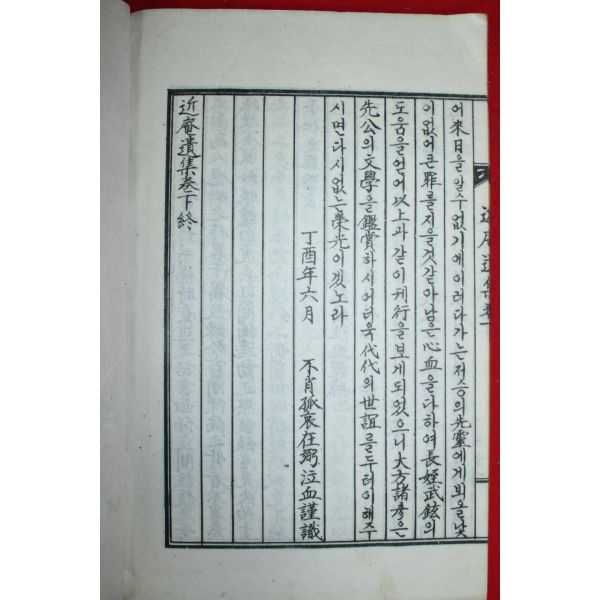 近庵遺集卷下
어來日을알수없기에이러다가는저승의先靈에게뵈올낯
이없어큰罪를지을것같아남은心血을다하여長姪武鉉의
도움을얻어以上과같이刊行을보게되었으니大方諸彦은
先公의文學을鑑賞하시어더욱代代의世誼를두터이해주
시면다시없는榮光이겠노라
丁酉年六月 不肖孤哀在弼泣血謹識
近庵遺集卷下終